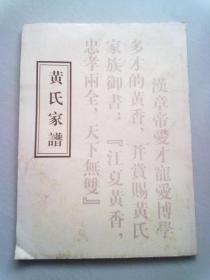 漢章帝愛才寵愛博學
多才的黃香，并賞賜黃氏
家族御書：『江夏黃香，
忠孝兩全、天下無雙』
黃氏家譜